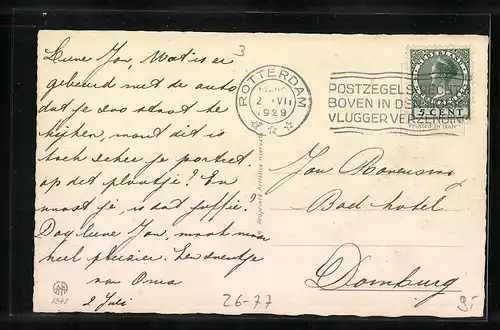 Lieve Jan, Wat is er
gebeurd met de auto
dat je zoo staat te
kijken, want dit is
toch zeker je portret
op dit plaatje? En
naast je, is dat Juffie?
Dag lieve Jan, maak maar
heel plezier. Een zoentje
van Oma
2 Juli
1947
3
ROTTERDAM
2 VII
1929
POSTZEGELS RECHTS
BOVEN IN DEN HOEK
VLUGGER VERZENDING
NEDERLAND
5 CENT
Printed in Italy
Jan
Bad hotel
Domburg
26-77
9.-